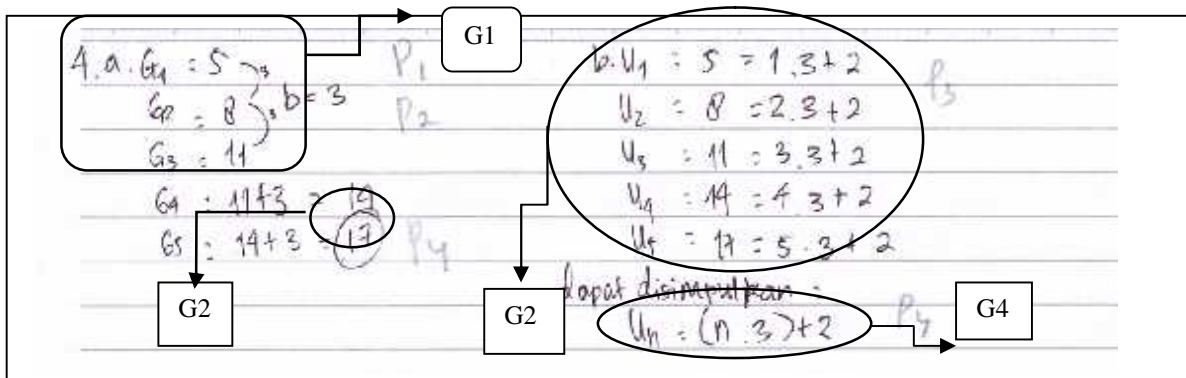 G1
4.a. G1 : 5 3 P1
G2 : 8 3 b = 3 P2
G3 : 11
G4 : 11+3 = 14
G5 : 14+3 = 17 P4
G2
b. U1 : 5 = 1.3+2 P3
U2 : 8 = 2.3+2
U3 : 11 = 3.3+2
U4 : 14 = 4.3+2
U5 = 17 = 5.3+2
dapat disimpulkan :
Un = (n.3)+2
G2
G4